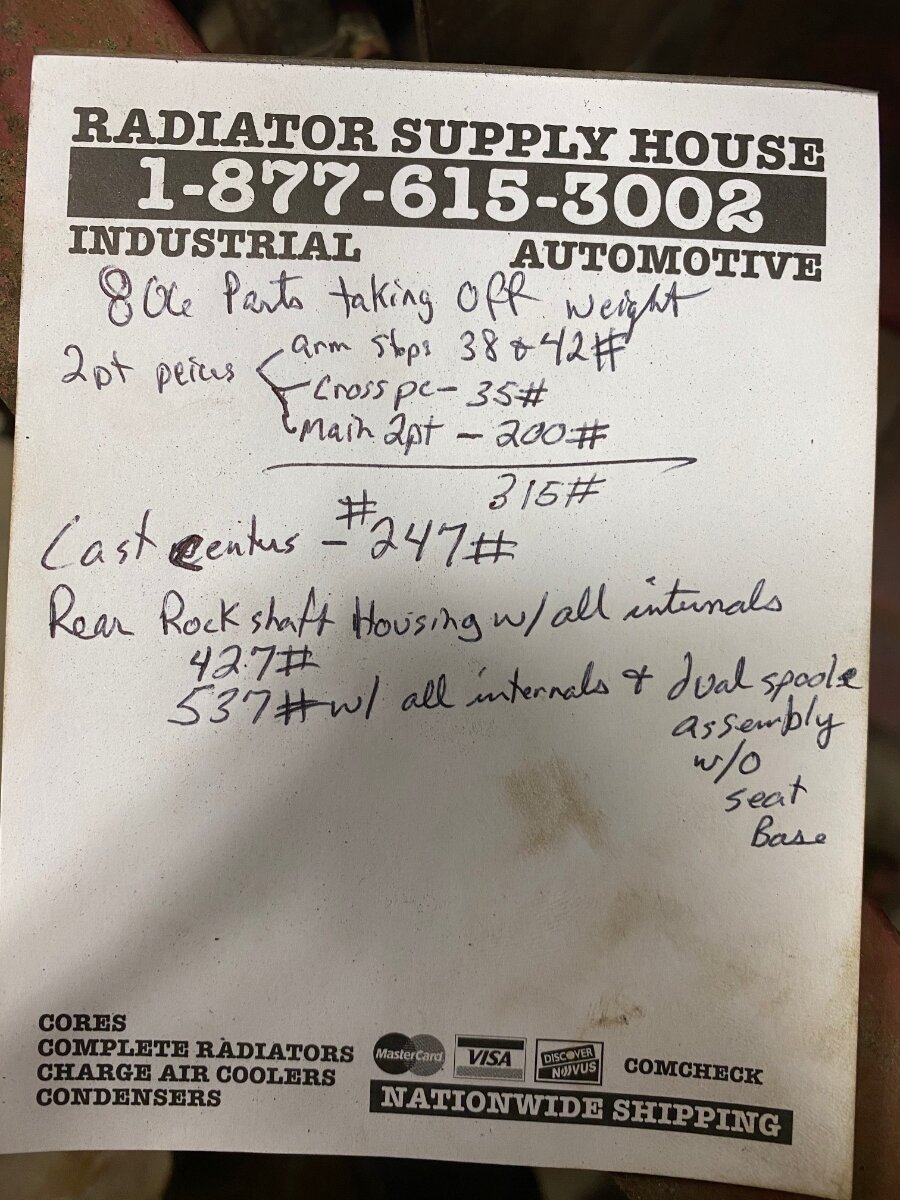 RADIATOR SUPPLY HOUSE
1-877-615-3002
INDUSTRIAL AUTOMOTIVE
806 Parts taking Off weight
2pt peices
arm stops 38 & 42#
Cross pc - 35#
Main 2pt - 200#
315#
#
Cast centers - 247#
Rear Rockshaft Housing w/ all internals
427#
537# w/ all internals & dual spool
assembly
w/o
seat
Base
CORES
COMPLETE RADIATORS
CHARGE AIR COOLERS
CONDENSERS
MasterCard VISA DISCOVER NOVUS COMCHECK
NATIONWIDE SHIPPING